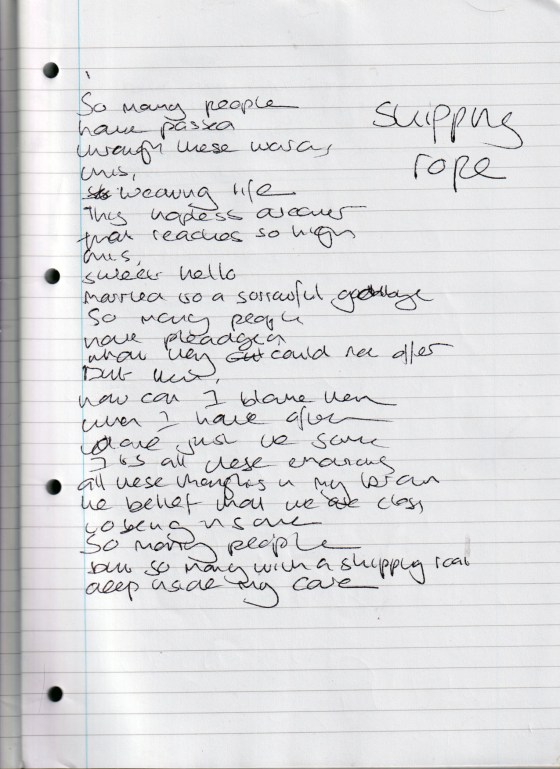 skipping
rope
So many people
have passed
through these words,
this,
weaving life
This hopless
that reaches so high
this,
sweet hello
married to a sorrowful goodbye
So many people
have pleadged
what they could not offer
But then,
how can I blame them
when I have often
done just the same
Its all these
all these thoughts in my brain
the belief that we are close
to being insane
So many people
but so many with a skipping
deep inside my